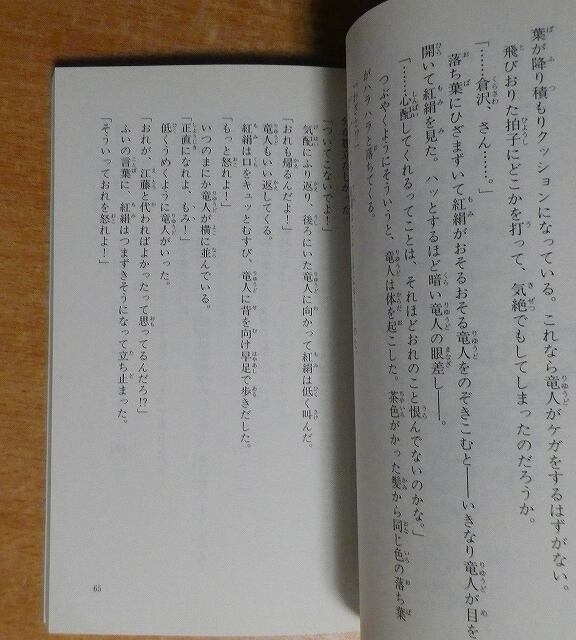 葉が降り積もりクッションになっている。これなら竜人がケガをするはずがない。
飛びおりた拍子にどこかを打って、気絶でもしてしまったのだろうか。
「……倉沢、さん……。」
落ち葉にひざまずいて紅絹がおそるおそる竜人をのぞきこむと――いきなり竜人が目を
開いて紅絹を見た。ハッとするほど暗い竜人の眼差し――。
「……心配してくれるってことは、それほどおれのこと恨んでないのかな。」
つぶやくようにそういうと、竜人は体を起こした。茶色がかった髪から同じ色の落ち葉
がハラハラと落ちてくる。
「ついてこないでよ！」
気配にふり返り、後ろにいた竜人に向かって紅絹は低く叫んだ。
「おれも帰るんだよ！」
竜人もいい返してくる。
紅絹は口をキュッとむすび、竜人に背を向け早足で歩きだした。
「もっと怒れよ！」
いつのまにか竜人が横に並んでいる。
「正直になれよ、もみ！」
低くうめくように竜人がいった。
「おれが、江藤と代わればよかったって思ってるんだろ!?」
ふいの言葉に、紅絹はつまずきそうになって立ち止まった。
「そういっておれを怒れよ！」
65